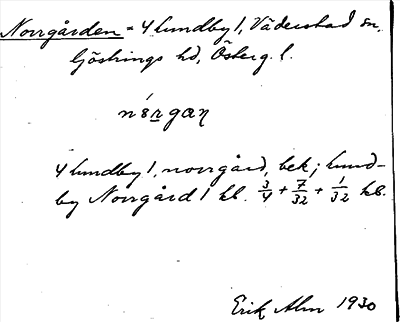 Norrgården = 4 Lundby 1, Väderstad sn,
Göstrings hd, Österg. l.
4 Lundby 1, norrgård, bek; Lund-
by Norrgård 1 hl. 3/4 + 7/32 + 1/32 hl.
Erik Alm 1930